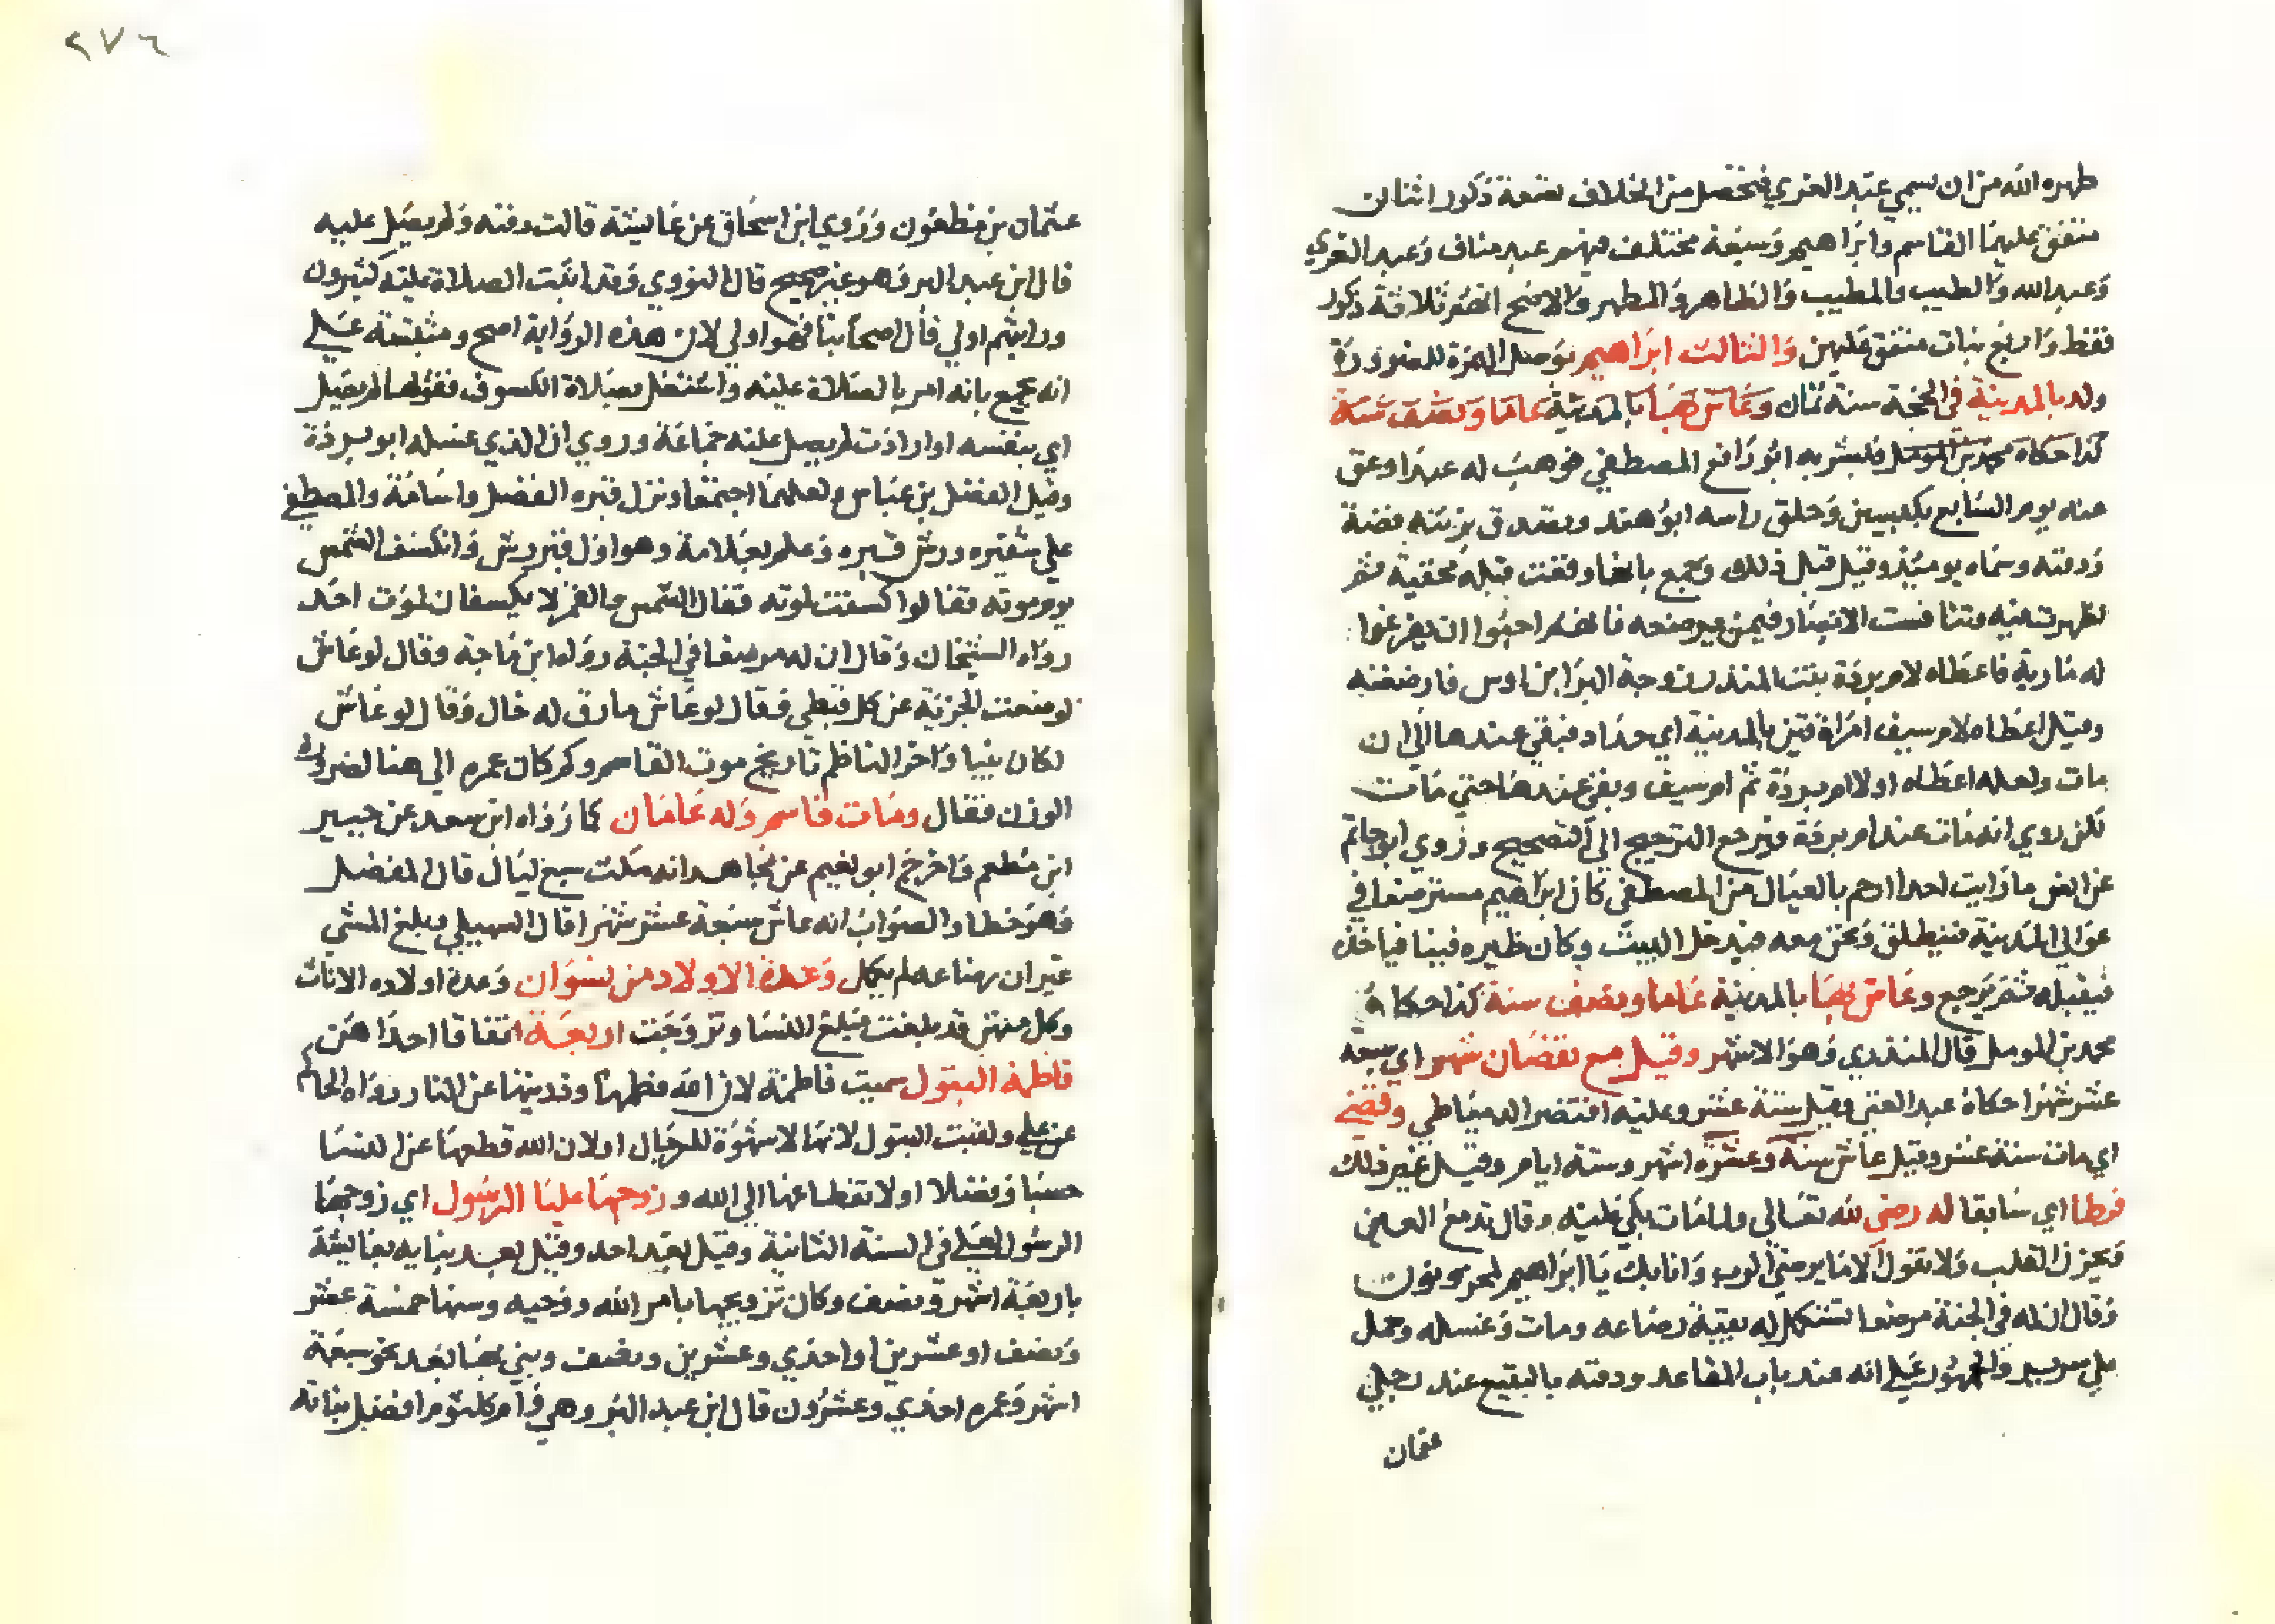 طهره الله من ان يسمي عبد العزي فتحصل من الخلاف تسعة ذكور اثنان
متفق عليهما القاسم وابراهيم وسبعة مختلف فيهم عبد مناف وعبد العزي
وعبد الله والطيب والمطيب والطاهر والمطهر والاصح انهم ثلاثة ذكور
فقط واربع بنات متفق عليهن والثالث ابراهيم بوصل الهمزة للضرورة
ولد بالمدينة في الحجة سنة ثمان وعاش بها بالمدينة عاما ونصف سنة
كذا حكاه محمد بن المومل فبشر به ابو رافع المصطفي فوهب له عبدا وعق
عنه يوم السابع بكبشين وحلق راسه ابو هند وتصدق بزنته فضة
ودفنه وسماه يومئذ وقيل قبل ذلك وجمع بانها وقعت قبله مخفية ثم
ظهرت فيه وتنافست الانصار فيمن يرضعه فانهم احبوا ان يفرغوا
له مارية فاعطاه لام بردة بنت المنذر زوجة البرا بن اوس فارضعته
وقيل اعطاه لام سيف امراة قين بالمدينة اي حداد فبقي عندها الي ان
مات ولعله اعطاه اولا ام بردة ثم ام سيف وبقي عندها حتي مات
لكن روي انه مات عند ام بردة ويرجع الترجيح الي التصحيح وروي ابو حاتم
عن انس ما رايت احدا ارحم بالعيال من المصطفي كان ابراهيم مسترضعا في
عوالي المدينة فينطلق ونحن معه فيدخل البيت وكان ظيره قينا فياخذه
فيقبله ثم يرجع وعاش بها بالمدينة عاما ونصف سنة كذا حكاه
محمد بن المومل قال المنذري وهو الاشهر وقيل مع نقصان شهر اي سبعة
عشر شهرا حكاه عبد الغني وقيل ستة عشر وعليه اقتصر الدمياطي وقضي
اي مات سنة عشر وقيل عاش سنة وعشرة اشهر وستة ايام وقيل غير ذلك
فرطا اي سابقا له رضي الله تعالي ولما مات بكي عليه وقال تدمع العين
ويحزن القلب ولا نقول الا ما يرضي الرب وانا بك يا ابراهيم لمحزونون
وقال ان له في الجنة مرضعا تستكمل له بقية رضاعه ومات وغسله وحمل
علي سرير والجمهور علي انه عند باب المقاعد ودفنه بالبقيع عند رجلي
عثمان
٢٧٦
عثمان بن مظعون وروي ابن اسحاق عن عايشة قالت دفنه ولم يصل عليه
قال ابن عبد البر وهو غير صحيح قال النووي وقد اثبت الصلاة عليه كثيرون
وروايتهم اولي قال اصحابنا فهو اولي لان هذه الرواية اصح ومثبتة علي
انه جمع بانه امر بالصلاة عليه واشتغل بصلاة الكسوف فقولها لم يصل
اي بنفسه او ارادت لم يصل عليه جماعة وروي ان الذي غسله ابو بردة
وقيل الفضل بن عباس ولعلهما اجتمعا ونزل قبره الفضل واسامة والمصطفي
علي شفيره ورش قبره وعلم بعلامة وهو اول قبر رش وانكسف الشمس
يوم موته فقالوا كسفت لموته فقال الشمس والقمر لا يكسفان لموت احد
رواه الشيخان وقال ان له مرضعا في الجنة رواه ابن ماجة وقال لو عاش
لوضعت الجزية عن كل قبطي وقال لو عاش ما رق له خال وقال لو عاش
لكان نبيا واخر الناظم تاريخ موت القاسم وكم كان عمره الي هنا لضرورة
الوزن فقال ومات قاسم وله عامان كما رواه ابن سعد عن جبير
ابن مطعم واخرج ابو نعيم عن مجاهد انه مكث سبع ليال قال المفضل
وهو خطا والصواب انه عاش سبعة عشر شهرا قال السهيلي وبلغ المشي
غير ان رضاعه لم يكمل وعدة الاولاد من نسوان وعدة اولاده الاناث
وكل منهن قد بلغت مبلغ النسا وتزوجت اربعة اتفاقا احداهن
فاطمة البتول سميت فاطمة لان الله فطمها وذريتها عن النار رواه الحاكم
عن علي ولقبت البتول لانها لا شهوة للرجال او لان الله قطعها عن النسا
حسنا وفضلا او لانقطاعها الي الله وزوجها عليا الرسول اي زوجها
الرسول لعلي في السنة الثانية وقيل بعد احد وقيل بعد بنايه بعايشة
باربعة اشهر ونصف وكان تزويجها بامر الله ووحيه وسنها خمسة عشر
ونصف او عشرين او احدي وعشرين ونصف وبني بها بعد نحو سبعة
اشهر وعمره احدي وعشرون قال ابن عبد البر وهي وام كلثوم افضل بناته